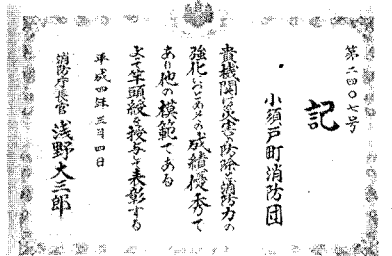 第二四〇七号
記
小須戸町消防団
貴機関は災害の防除と消防力の
強化につとめその成績優秀で
あり他の模範である
よって竿頭綬を授与して表彰する
平成四年三月四日
消防庁長官 浅野大三郎